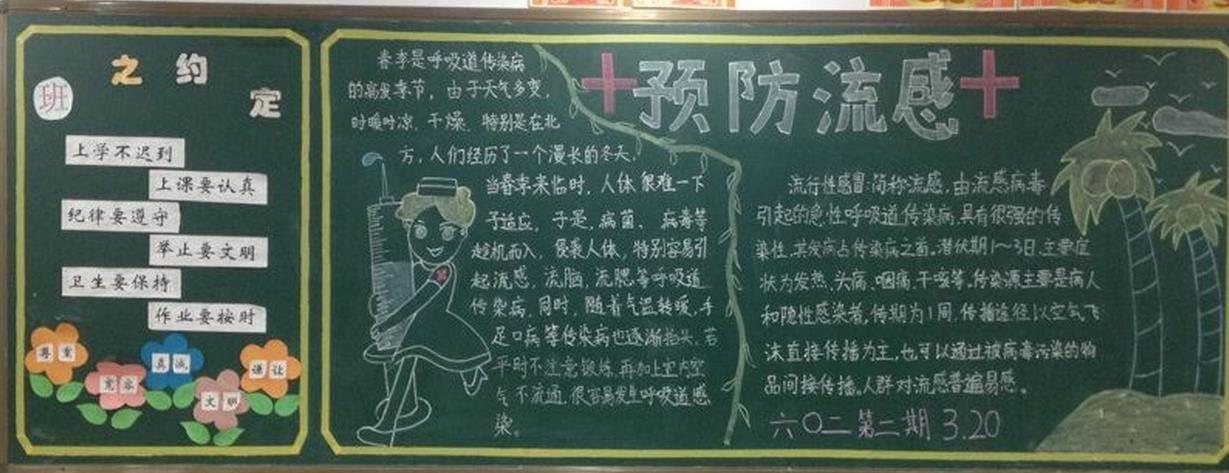 班之约定
上学不迟到
上课要认真
纪律要遵守
举止要文明
卫生要保持
作业要按时
尊重
宽容
真诚
文明
谦让
春季是呼吸道传染病
的高发季节，由于天气多变，
时暖时凉，干燥，特别是在北
方，人们经历了一个漫长的冬天，
当春季来临时，人体很难一下
子适应，于是，病菌、病毒等
趁机而入，侵袭人体，特别容易引
起流感，流脑，流腮等呼吸道
传染病，同时，随着气温转暖，手
足口病等传染病也逐渐抬头，若
平时不注意锻炼，再加上室内空
气不流通，很容易发生呼吸道感
染。
预防流感
流行性感冒简称流感，由流感病毒
引起的急性呼吸道传染病，具有很强的传
染性，其发病占传染病之首。潜伏期1～3日，主要症
状为发热、头痛、咽痛、干咳等，传染源主要是病人
和隐性感染者，传期为1周，传播途径以空气飞
沫直接传播为主，也可以通过被病毒污染的物
品间接传播。人群对流感普遍易感。
六〇二 第二期 3.20